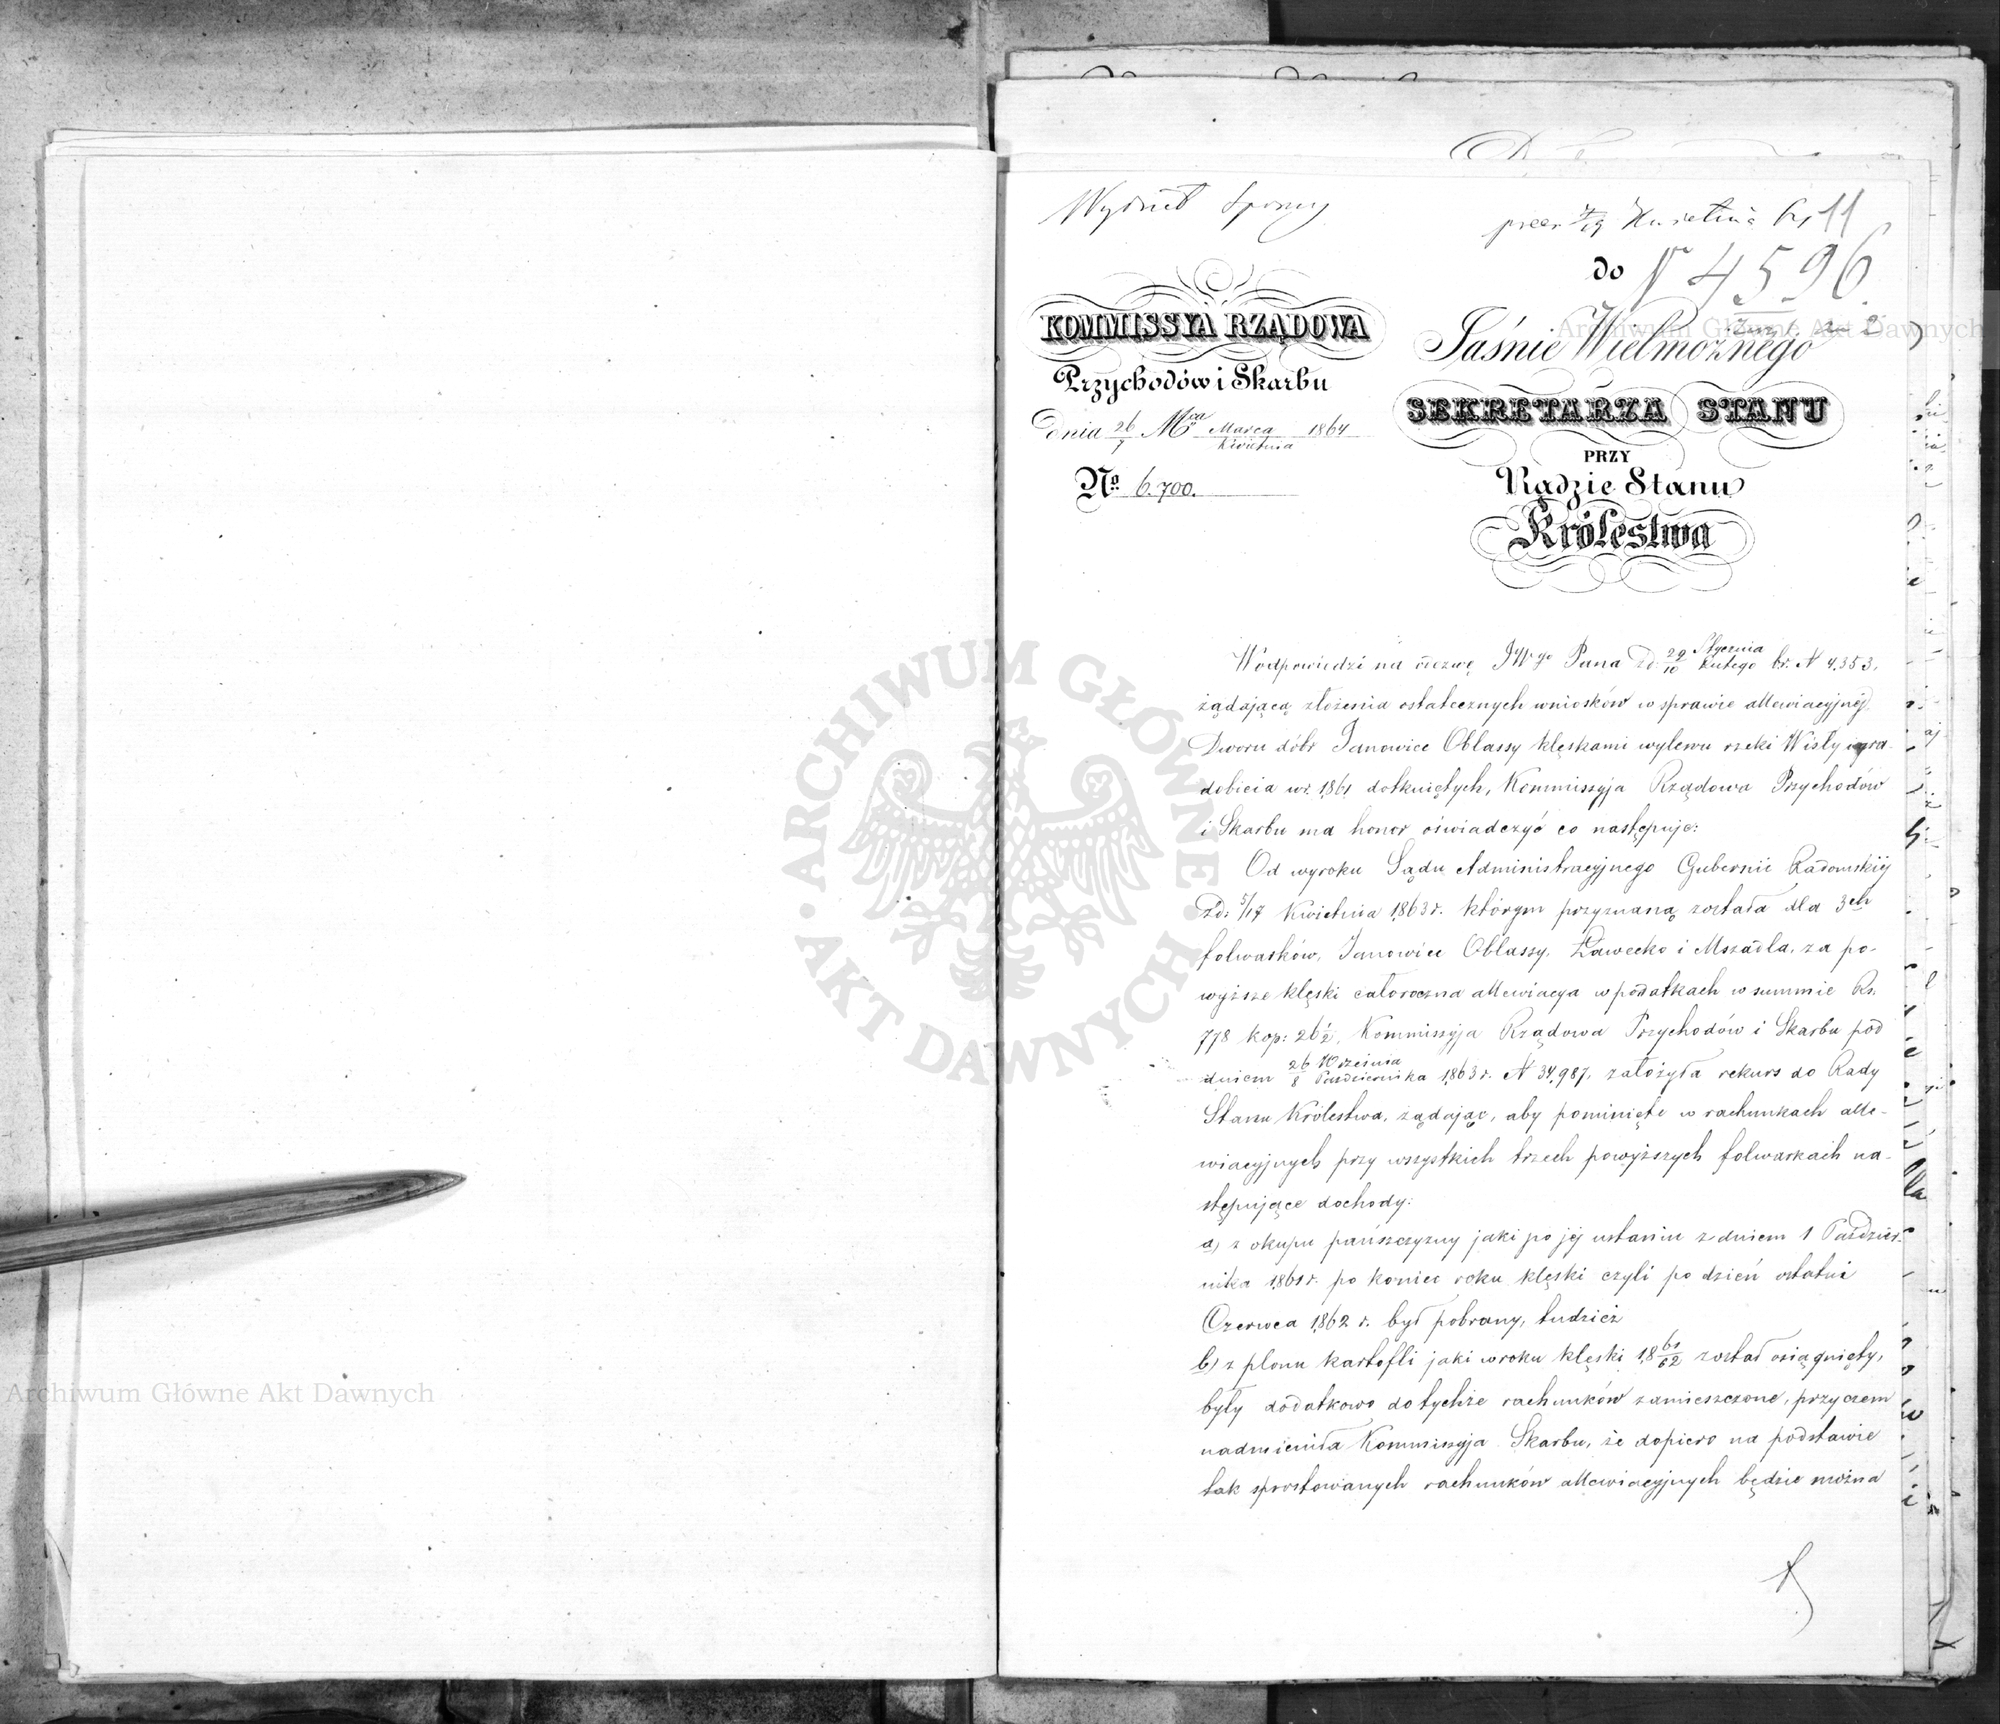 Wydział Sporny
prez 7/19 Kwietnia 64
11
N 4596
KOMMISSYA RZĄDOWA
Przychodów i Skarbu
dnia 26/7 Mca Marca/Kwietnia 1864
No. 6.700.
do
Jaśnie Wielmożnego
SEKRETARZA STANU
PRZY
Radzie Stanu
Królestwa
W odpowiedzi na odezwę JWgo Pana z d. 29/10 Stycznia/Lutego br. N 4,353,
żądającą złożenia ostatecznych wniosków w sprawie allewiacyjnej
Dworu dóbr Janowice Oblassy klęskami wylewu rzeki Wisły i gra-
dobicia w r. 1861 dotkniętych, Kommissyja Rządowa Przychodów
i Skarbu ma honor oświadczyć co następuje:
Od wyroku Sądu Administracyjnego Gubernii Radomskiéj
z d. 5/17 Kwietnia 1863 r. którym przyznaną została dla 3ch
folwarków, Janowice Oblassy, Ławecko i Mszadla, za po-
wyższe klęski całoroczna allewiacya w podatkach w summie Rs.
778 kop: 26 1/2, Kommissyja Rządowa Przychodów i Skarbu pod
dniem 26/8 Września/Października 1863 r. N 34,987, założyła rekurs do Rady
Stanu Królestwa, żądając, aby pominięte w rachunkach alle-
wiacyjnych przy wszystkich trzech powyższych folwarkach na-
stępujące dochody:
a) z okupu pańszczyzny jaki po jéj ustaniu z dniem 1 Paździer-
nika 1861 r. po koniec roku klęski czyli po dzień ostatni
Czerwca 1862 r. był pobrany, tudzież
b) z plonu kartofli jaki w roku klęski 18 61/62 został osiągnięty,
były dodatkowo do tychże rachunków zamieszczone, przyczem
nadmieniła Kommissyja Skarbu, że dopiero na podstawie
tak sprostowanych rachunków allewiacyjnych będzie można
ARCHIWUM GŁÓWNE AKT DAWNYCH
Archiwum Główne Akt Dawnych
Archiwum Główne Akt Dawnych